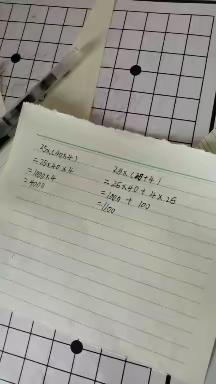 25×(40×4)
=25×40×4
=1000×4
=4000
=25×40+4×25
=1000+100
=1100